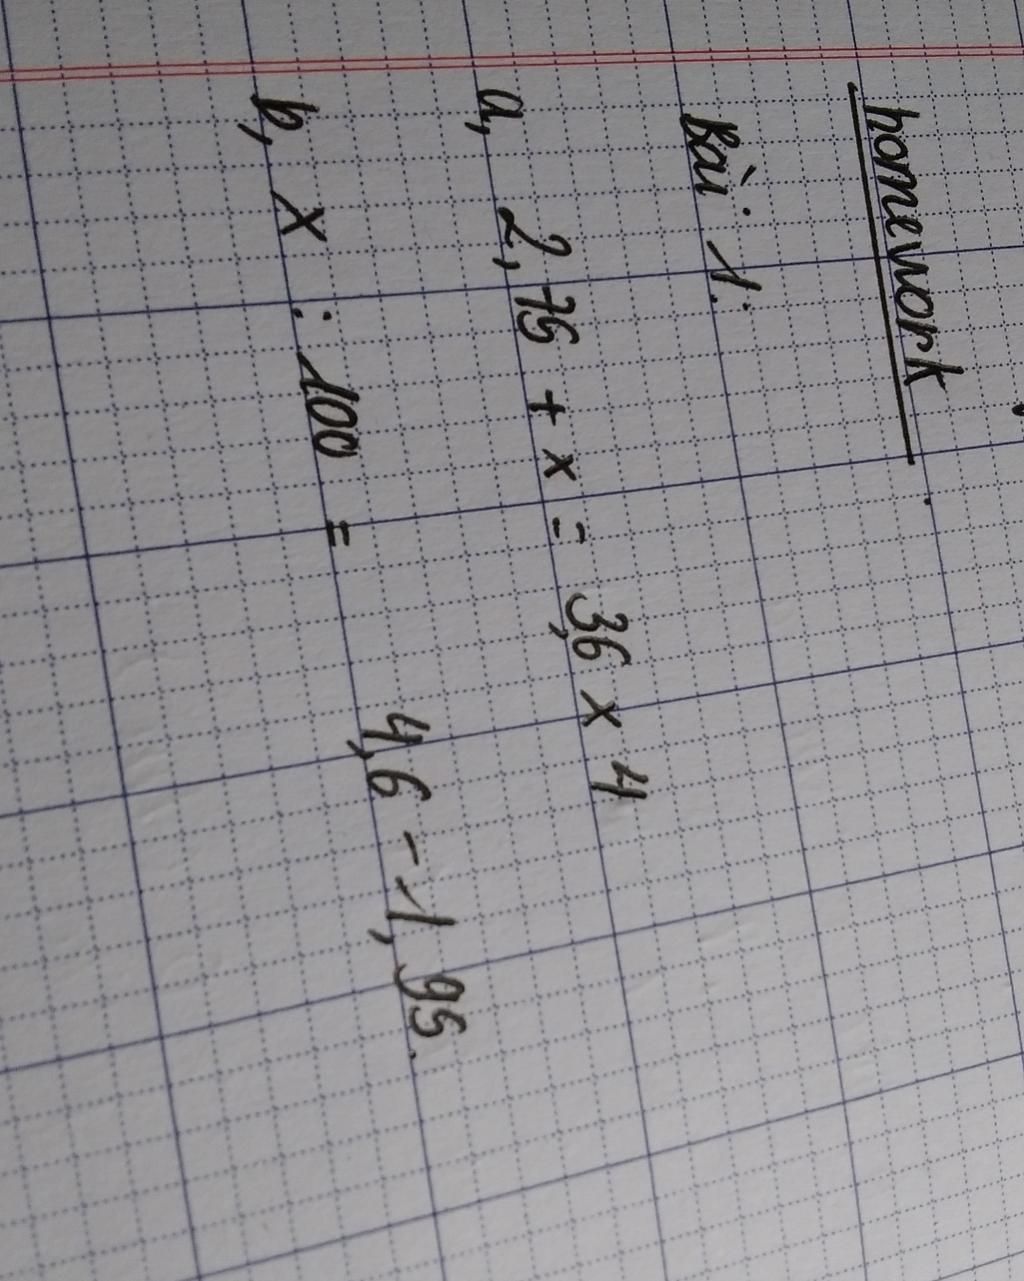 homework
Bài 1:
a, 2,75 + x = 3,6 x 4
b, x : 100 = 4,6 - 1,95.